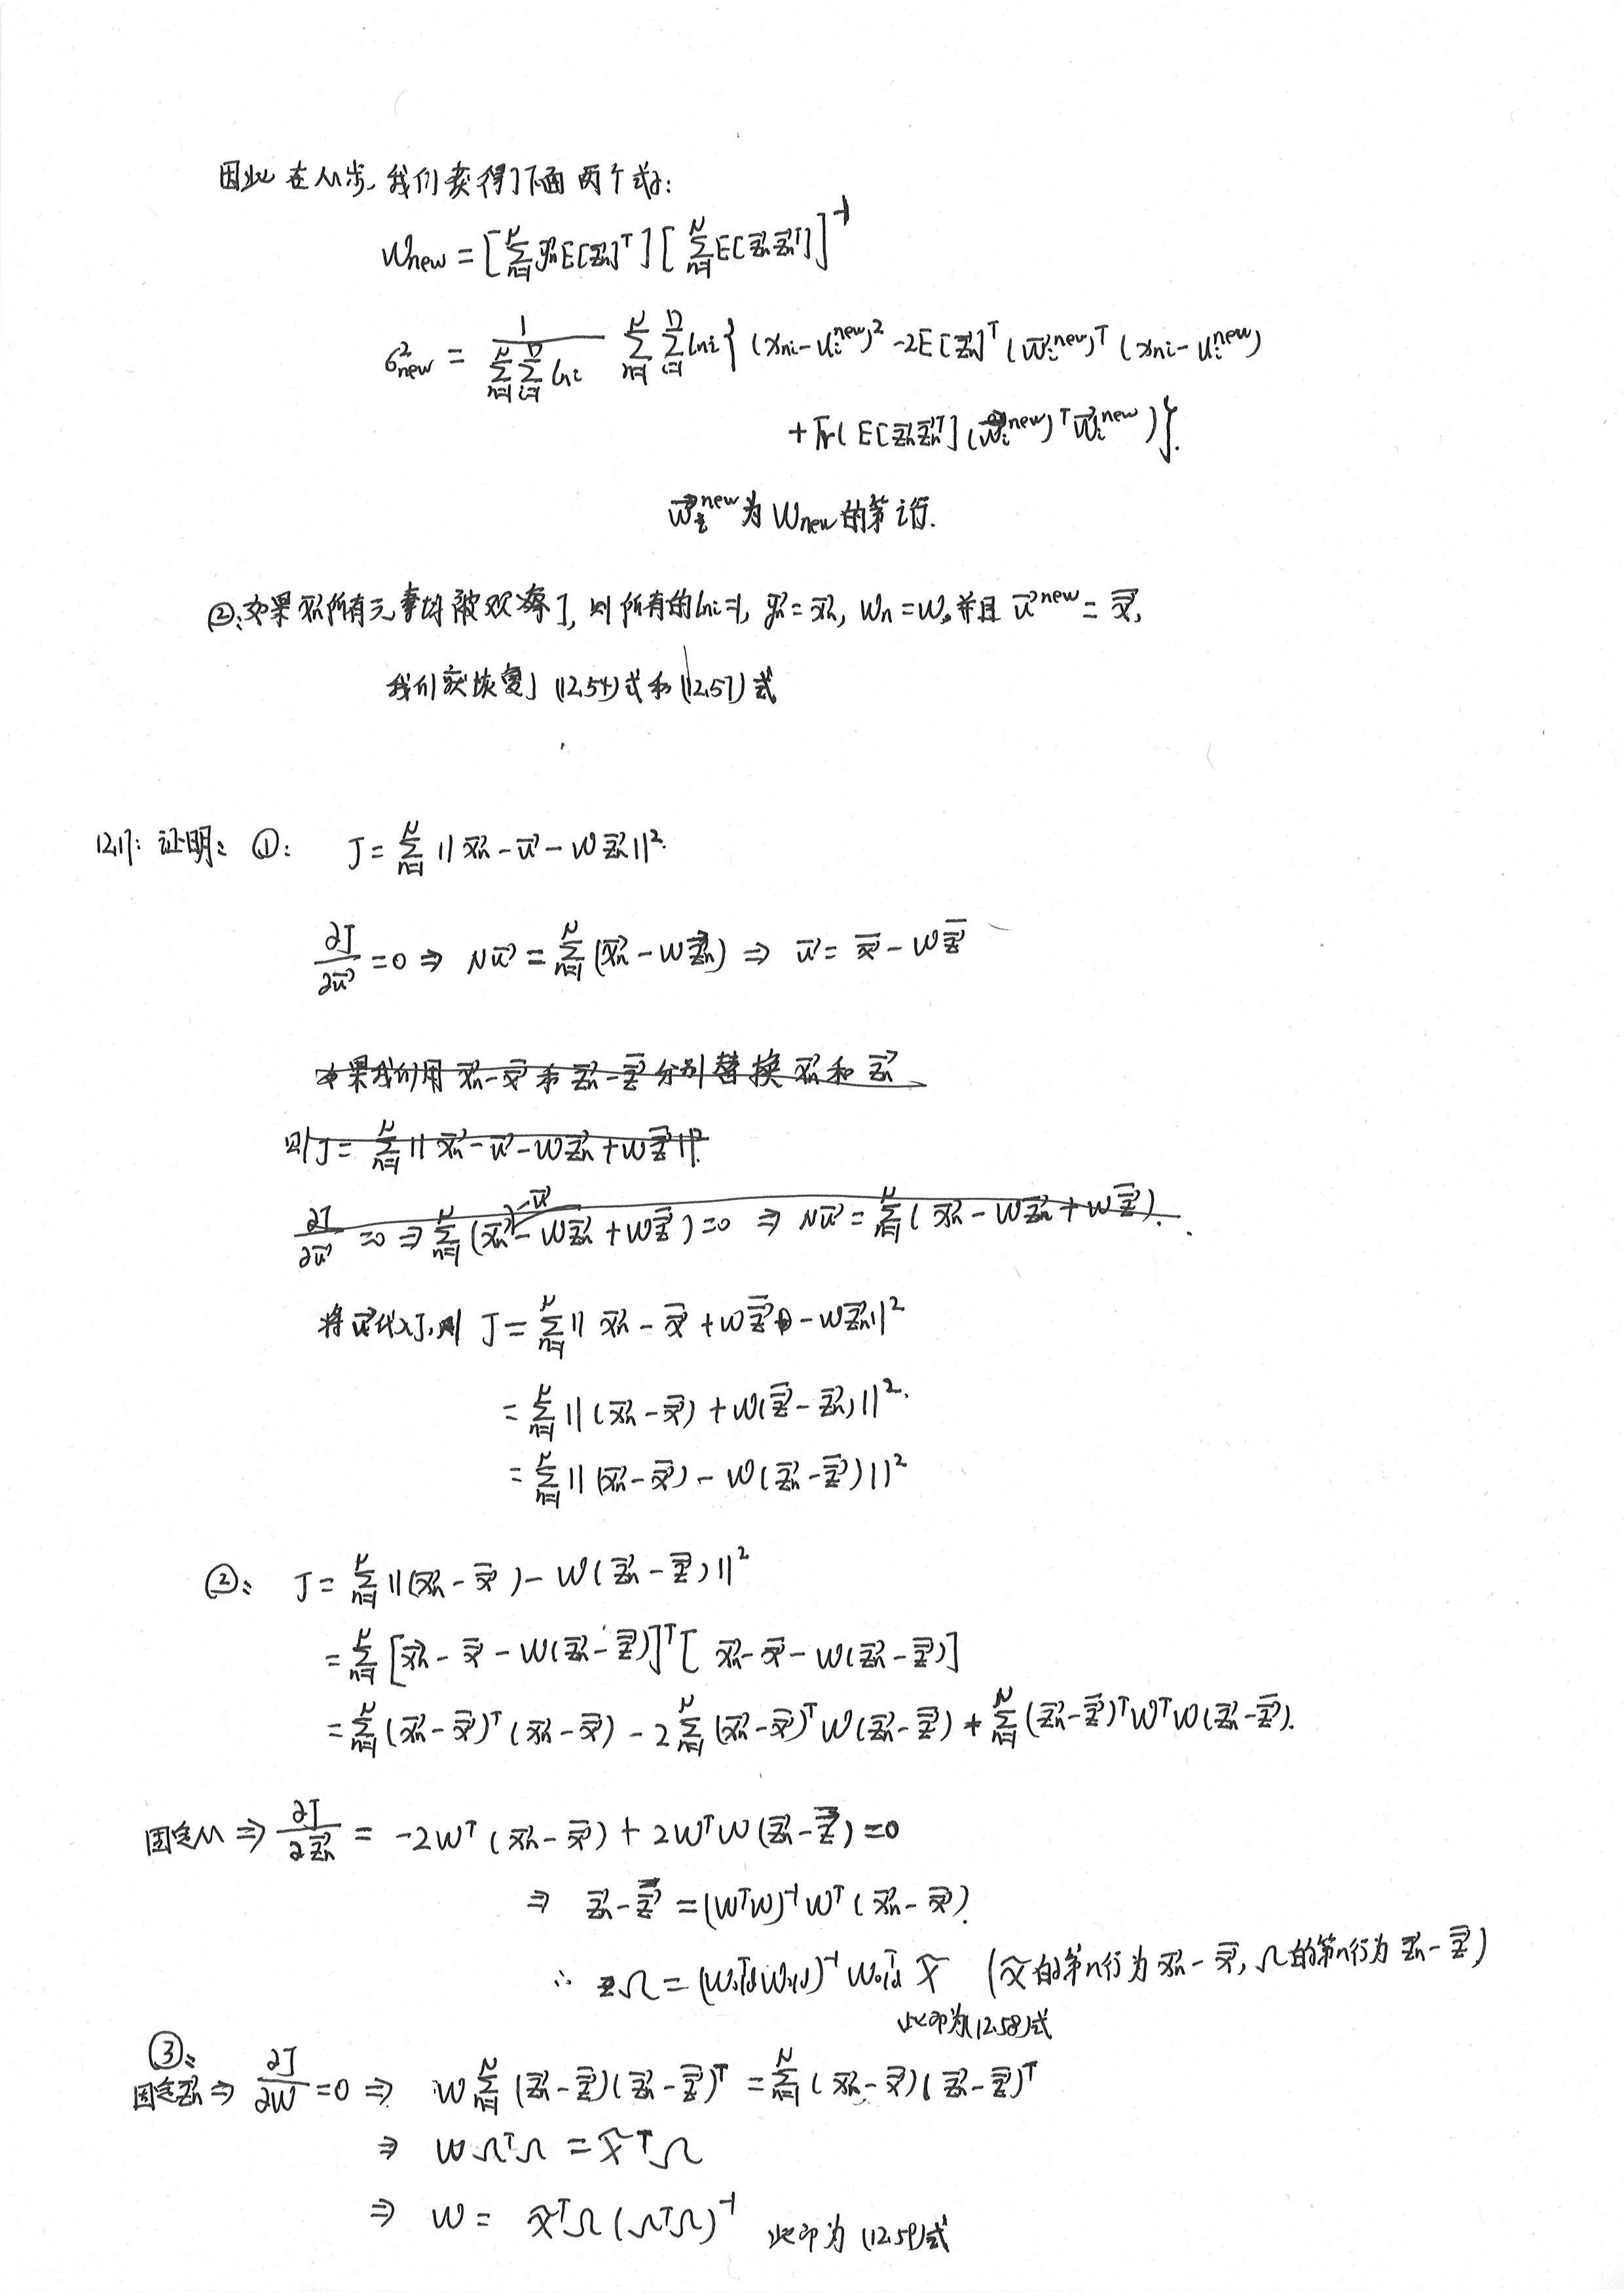 因此在M步,我们获得了下面两个式子:
W_new = [∑_{n=1}^{N} y⃗_n E[z⃗_n]^T] [∑_{n=1}^{N} E[z⃗_n z⃗_n^T]]^{-1}
σ²_new = 1/(∑_{n=1}^{N} ∑_{i=1}^{D} l_{ni}) ∑_{n=1}^{N} ∑_{i=1}^{D} l_{ni} { (x_{ni} - u_i^{new})² - 2E[z⃗_n]^T (w⃗_i^{new})^T (x_{ni} - u_i^{new})
+ Tr( E[z⃗_n z⃗_n^T] (w⃗_i^{new})^T w⃗_i^{new} ) }.
w⃗_i^{new} 为 W_new 的第i行.
②: 如果x⃗_n所有元素均被观察了, 则所有的l_{ni}=1, y⃗_n = x⃗_n, W_n = W, 并且 u⃗^{new} = x̄⃗,
我们就恢复了 (12.54)式和(12.57)式
12.17: 证明: ①: J = ∑_{n=1}^{N} || x⃗_n - u⃗ - W z⃗_n ||².
∂J/∂u⃗ = 0 ⇒ N u⃗ = ∑_{n=1}^{N} (x⃗_n - W z⃗_n) ⇒ u⃗ = x̄⃗ - W z̄⃗
如果我们用 x⃗_n - x̄⃗ 和 z⃗_n - z̄⃗ 分别替换 x⃗_n 和 z⃗_n
则 J = ∑_{n=1}^{N} || x⃗_n - u⃗ - W z⃗_n + W z̄⃗ ||².
∂J/∂u⃗ = 0 ⇒ ∑_{n=1}^{N} (x⃗_n - u⃗ - W z⃗_n + W z̄⃗) = 0 ⇒ N u⃗ = ∑_{n=1}^{N} ( x⃗_n - W z⃗_n + W z̄⃗ ).
将u⃗代入J, 则 J = ∑_{n=1}^{N} || x⃗_n - x̄⃗ + W z̄⃗ - W z⃗_n ||²
= ∑_{n=1}^{N} || (x⃗_n - x̄⃗) + W(z̄⃗ - z⃗_n) ||².
= ∑_{n=1}^{N} || (x⃗_n - x̄⃗) - W(z⃗_n - z̄⃗) ||²
②: J = ∑_{n=1}^{N} || (x⃗_n - x̄⃗) - W(z⃗_n - z̄⃗) ||²
= ∑_{n=1}^{N} [x⃗_n - x̄⃗ - W(z⃗_n - z̄⃗)]^T [x⃗_n - x̄⃗ - W(z⃗_n - z̄⃗)]
= ∑_{n=1}^{N} (x⃗_n - x̄⃗)^T (x⃗_n - x̄⃗) - 2∑_{n=1}^{N} (x⃗_n - x̄⃗)^T W(z⃗_n - z̄⃗) + ∑_{n=1}^{N} (z⃗_n - z̄⃗)^T W^T W(z⃗_n - z̄⃗).
固定W ⇒ ∂J/∂z⃗_n = -2W^T (x⃗_n - x̄⃗) + 2W^T W(z⃗_n - z̄⃗) = 0
⇒ z⃗_n - z̄⃗ = (W^T W)^{-1} W^T (x⃗_n - x̄⃗).
∴ Ω = (W_old^T W_old)^{-1} W_old^T X̃ (X̃的第n行为 x⃗_n - x̄⃗, Ω的第n行为 z⃗_n - z̄⃗)
此即为(12.58)式
③:
固定z⃗_n ⇒ ∂J/∂W = 0 ⇒ W ∑_{n=1}^{N} (z⃗_n - z̄⃗)(z⃗_n - z̄⃗)^T = ∑_{n=1}^{N} (x⃗_n - x̄⃗)(z⃗_n - z̄⃗)^T
⇒ W Ω^T Ω = X̃^T Ω
⇒ W = X̃^T Ω (Ω^T Ω)^{-1} 此即为 (12.59)式